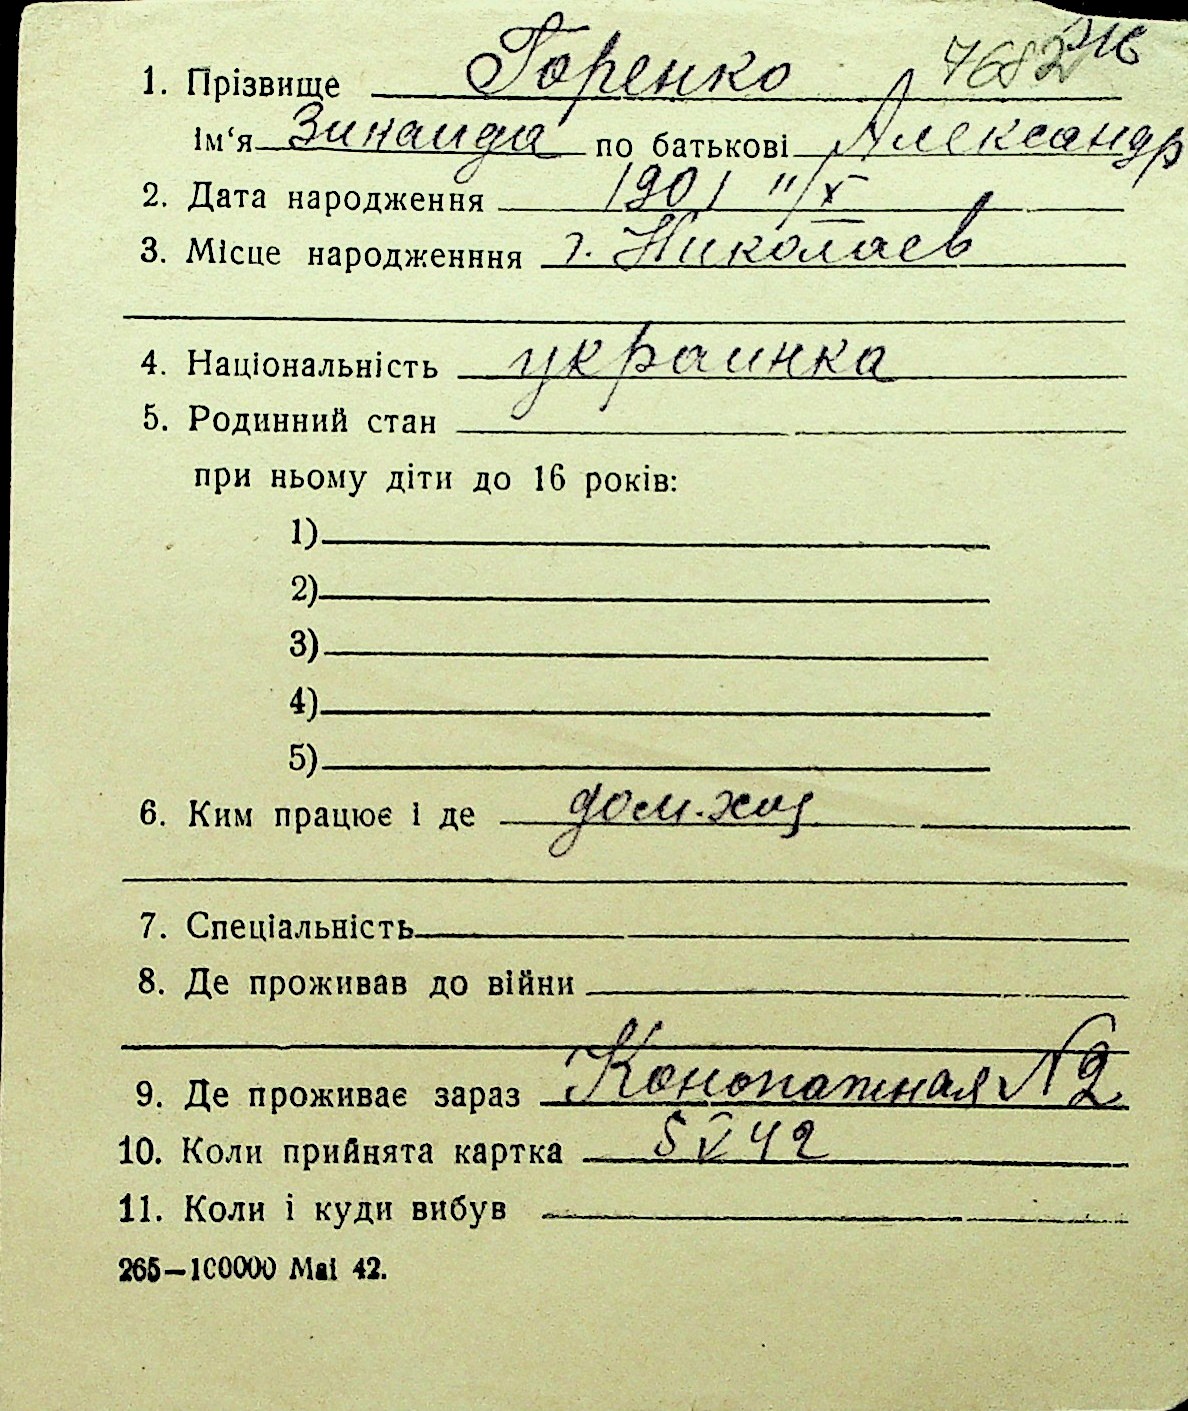 7682
1. Прізвище Горенко
ім‘я Зинаида по батькові Александр
2. Дата народження 1901 11/X
3. Місце народженння г. Николаев
4. Національність украинка
5. Родинний стан
при ньому діти до 16 років:
1)
2)
3)
4)
5)
6. Ким працює і де дом.хоз
7. Спеціальність
8. Де проживав до війни
9. Де проживає зараз Конопатная N 2
10. Коли прийнята картка 5 V 42
11. Коли і куди вибув
265—100000 Mai 42.